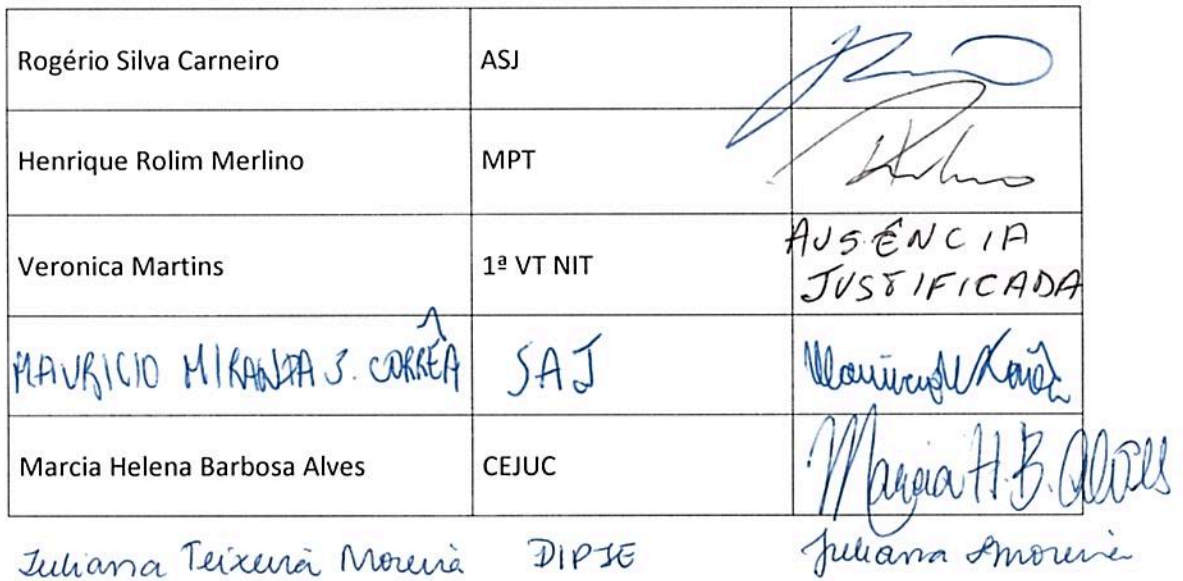 Rogério Silva Carneiro ASJ
Henrique Rolim Merlino MPT
Veronica Martins 1ª VT NIT AUSÊNCIA
JUSTIFICADA
MAURICIO MIRANDA S. CORRÊA SAJ
Marcia Helena Barbosa Alves CEJUC Marcia H. B. Alves
Juliana Teixeira Moreira DIPJE Juliana Moreira